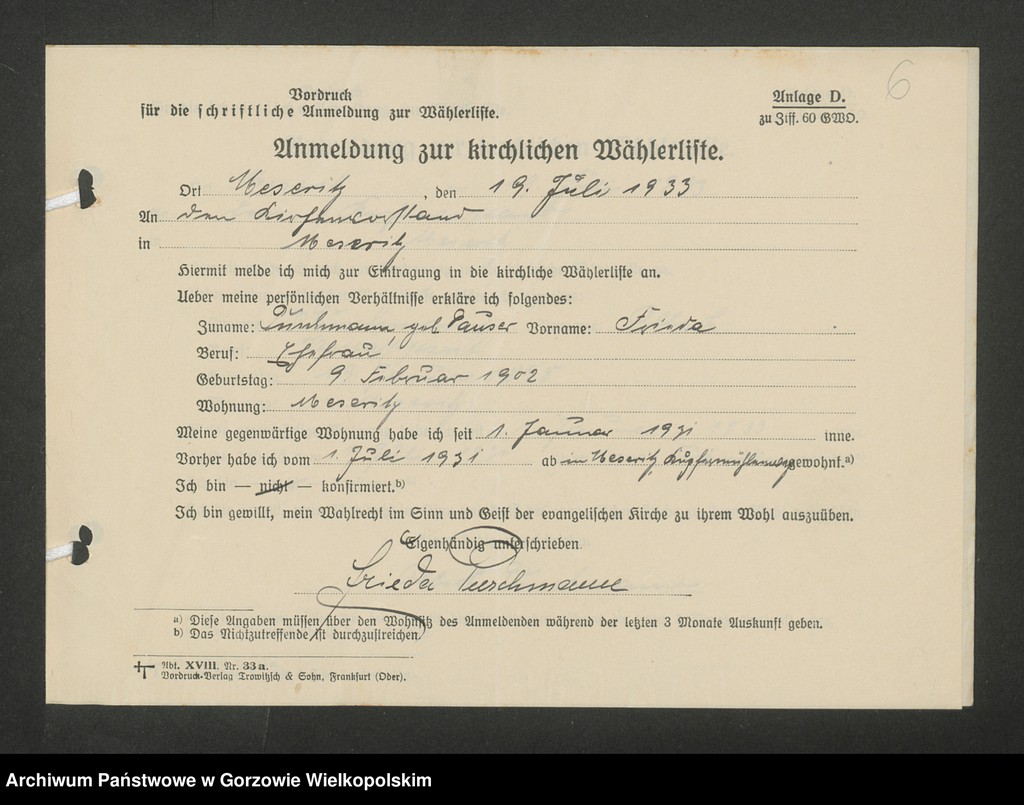 6
Vordruck
für die schriftliche Anmeldung zur Wählerliste.
Anlage D.
zu Ziff. 60 GWO.
Anmeldung zur kirchlichen Wählerliste.
Ort Meseritz, den 19. Juli 1933
An den Kirchenvorstand
in Meseritz
Hiermit melde ich mich zur Eintragung in die kirchliche Wählerliste an.
Ueber meine persönlichen Verhältnisse erkläre ich folgendes:
Zuname: Puschmann, geb. Pauser Vorname: Frieda
Beruf: Ehefrau
Geburtstag: 9. Februar 1902
Wohnung: Meseritz
Meine gegenwärtige Wohnung habe ich seit 1. Januar 1931 inne.
Vorher habe ich vom 1. Juli 1931 ab in Meseritz, Kupfermühlenweg gewohnt.a)
Ich bin — nicht — konfirmiert.b)
Ich bin gewillt, mein Wahlrecht im Sinn und Geist der evangelischen Kirche zu ihrem Wohl auszuüben.
Eigenhändig unterschrieben.
Frieda Puschmann
a) Diese Angaben müssen über den Wohnsitz des Anmeldenden während der letzten 3 Monate Auskunft geben.
b) Das Nichtzutreffende ist durchzustreichen.
Abt. XVIII. Nr. 33a.
Vordruck-Verlag Trowitzsch & Sohn, Frankfurt (Oder).
Archiwum Państwowe w Gorzowie Wielkopolskim